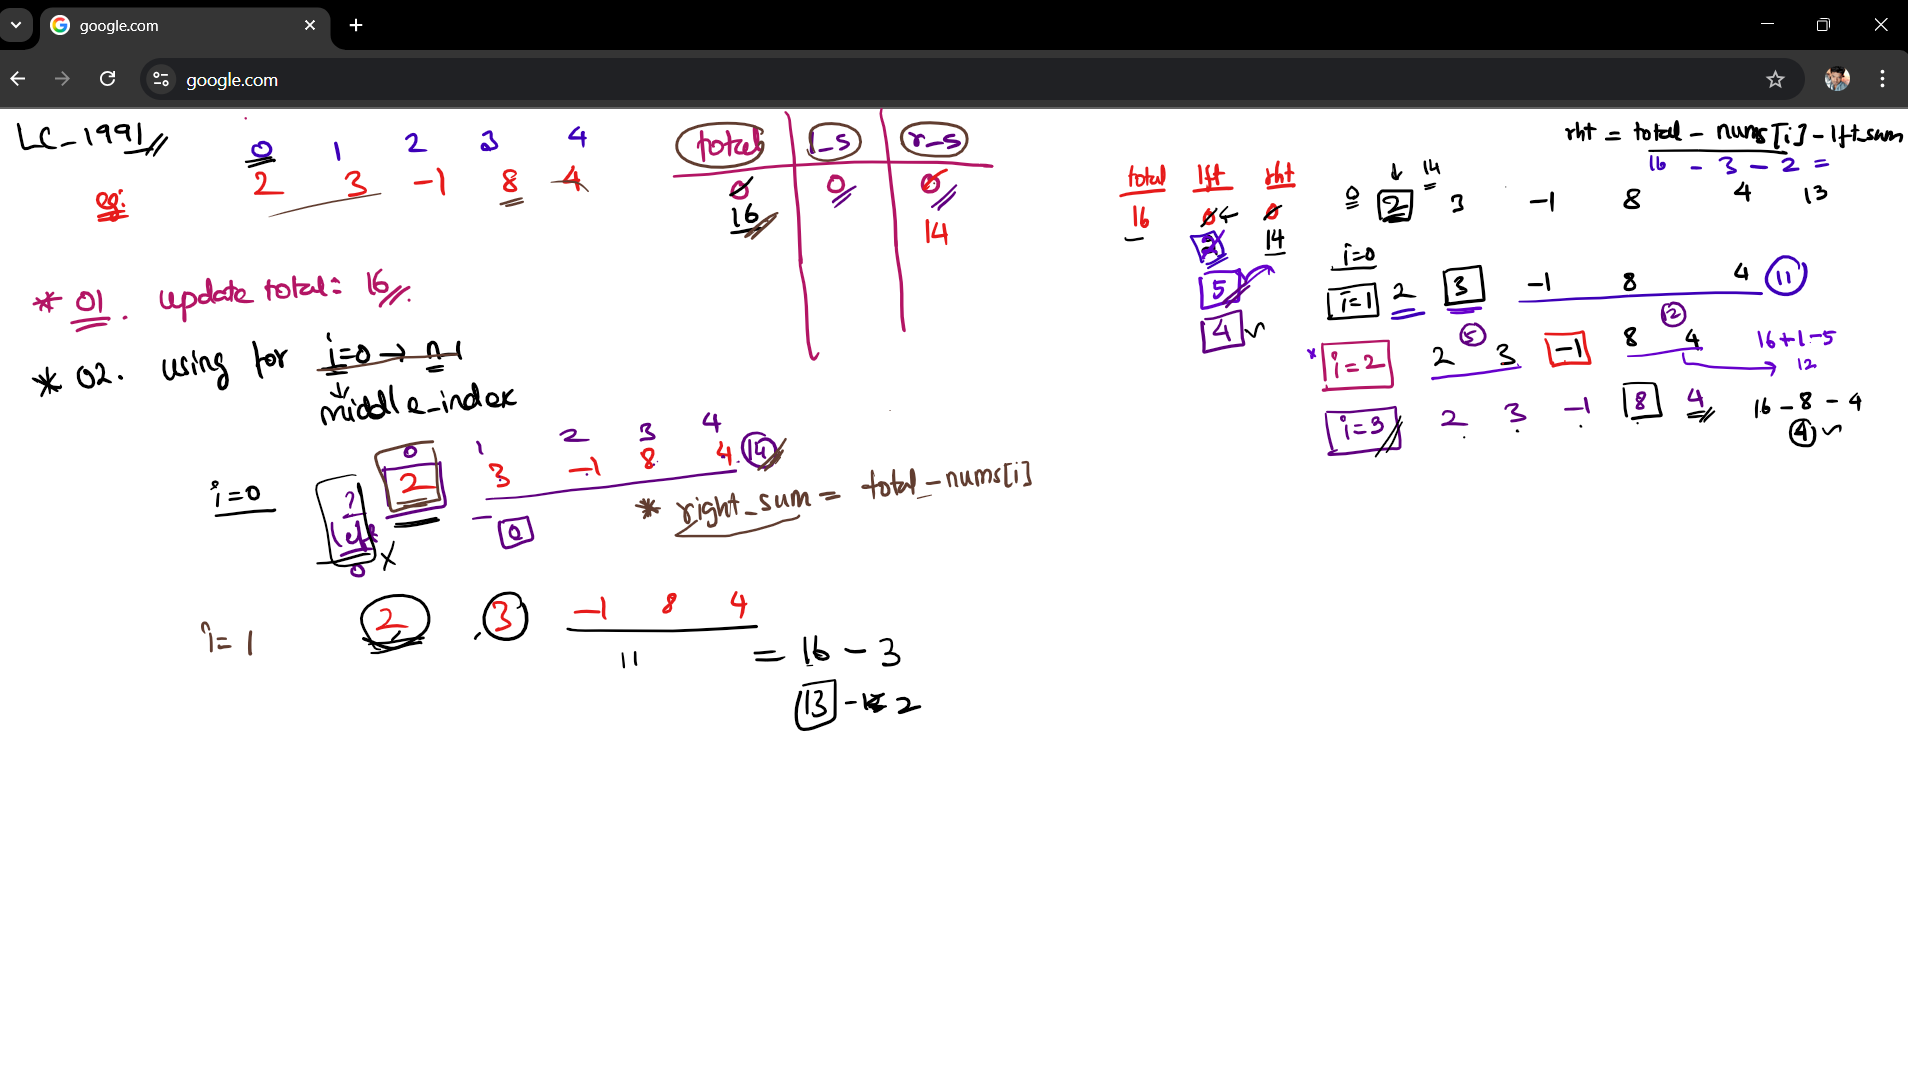 google.com
google.com
LC-1991
0 1 2 3 4
eg: 2 3 -1 8 4
total l_s r_s
0 0 0
16 14
* 01. update total: 16
* 02. using for i=0 → n-1
middle_index
0 1 2 3 4
i=0 2 3 -1 8 4 14
left
0
0
* right_sum = total - nums[i]
i=1 2 3 -1 8 4
11 = 16 - 3
13 - 2
rht = total - nums[i] - lft_sum
16 - 3 - 2 =
total lft rht
16 0 0
2 14
5
4
14
0 2 3 -1 8 4 13
i=0
i=1 2 3 -1 8 4 11
5 12
i=2 2 3 -1 8 4 16+1-5
12
i=3 2 3 -1 8 4 16-8-4
4